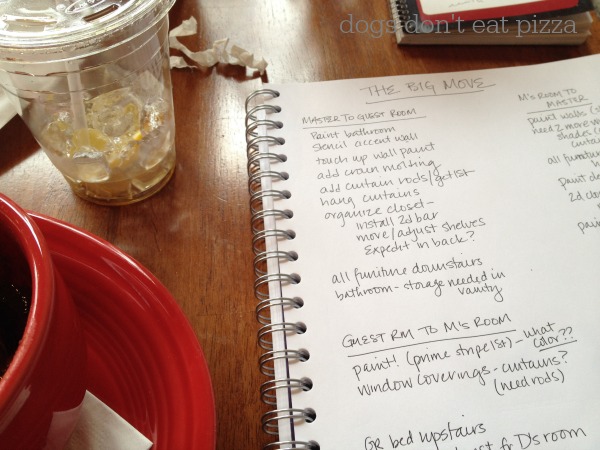 dogs don't eat pizza
THE BIG MOVE
MASTER TO GUEST ROOM
Paint bathroom
stencil accent wall
touch up wall paint
add crown molting
add curtain rods/get 1st
hang curtains
organize closet-
install 2d bar
move/adjust shelves
Expedit in back?
all funiture downstairs
bathroom - storage needed in
vanity
GUEST RM TO M's ROOM
paint! (prime stripe 1st) - what
color??
window coverings - curtains?
(need rods)
GR bed upstairs
fr D's room
M's ROOM TO
MASTER
paint walls
need 2 more
shades
all furniture
paint
2d